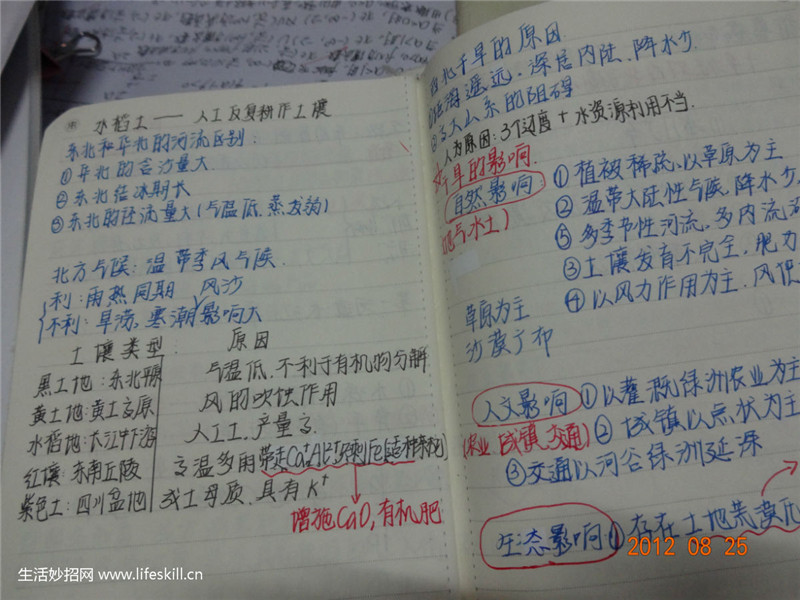 水稻土——人工反复耕作土壤
东北和华北的河流区别:
①华北的含沙量大.
②东北结冰期长
③东北的径流量大(气温低.蒸发弱)
北方气候:温带季风气候.
利:雨热同期 风沙
不利:旱涝,寒潮影响大
土壤类型: 原因
黑土地:东北平原 气温低.不利于有机物分解
黄土地:黄土高原 风的吹蚀作用
水稻地:长江中下游 人工工,产量高.
红壤:东南丘陵 高温多雨带走
紫色土:四川盆地 成土母质.具有K⁺
增施CaO,有机肥
西北干旱的原因
距海遥远.深居内陆.降水少
高大山系的阻碍
人为原因:3个过度+水资源利用不当.
干旱的影响.
自然影响: ①植被稀疏.以草原为主
气水土) ②温带大陆性气候.降水少
⑤多季节性河流,多内流
③土壤发育不完全,肥力
④以风力作用为主,风
草原为主
沙漠广布
人文影响 ①以灌溉/绿洲农业为主
(农业 城镇 交通) ②城镇以点状为主
③交通以河谷绿洲延深
生态影响 ①存在土地荒漠
2012 08 25
生活妙招网 www.lifeskill.cn